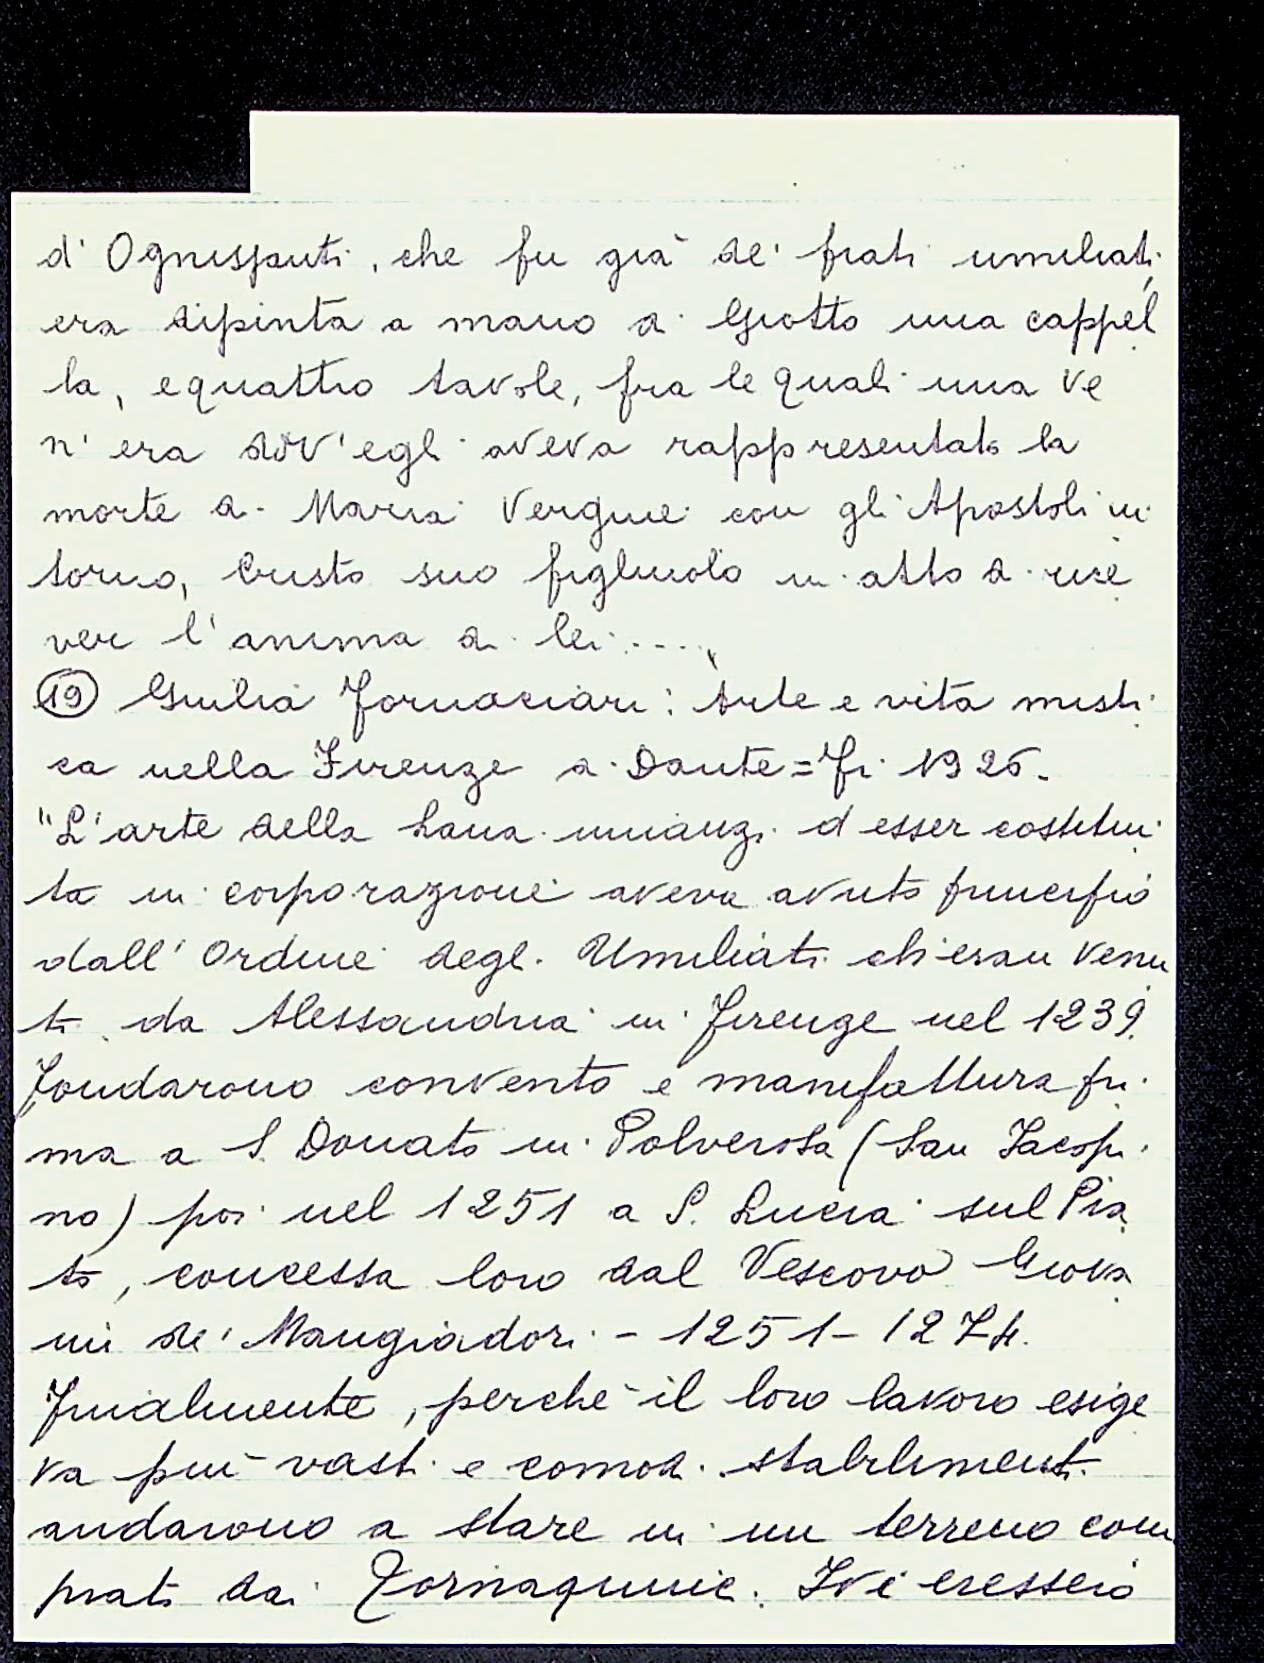 d'Ognissanti, che fu già de' frati umiliati,
era dipinta a mano di Giotto una cappel
la, e quattro tavole, fra le quali una ve
n'era dov'egli aveva rappresentato la
morte di Maria Vergine con gli Apostoli in
torno, Cristo suo figliuolo in atto di rice
ver l'anima di lei....,
19 Giulia Fornaciari: Arte e vita misti
ca nella Firenze di Dante = Fi 1926.
"L'arte della Lana innanzi d esser costitui
ta in corporazione aveva avuto principio
dall'Ordine degli Umiliati ch'eran venu
ti da Alessandria in Firenze nel 1239.
Fondarono convento e manifattura pri
ma a S. Donato in Polverosa (San Iacopi
no) poi nel 1251 a S. Lucia sul Pra
to, concessa loro dal Vescovo Giova
nni de' Mangiadori - 1251 - 1274.
Finalmente, perchè il loro lavoro esige
va più vasti e comodi stabilimenti
andarono a stare in un terreno com
prato dai Tornaquinci. Ivi eressero